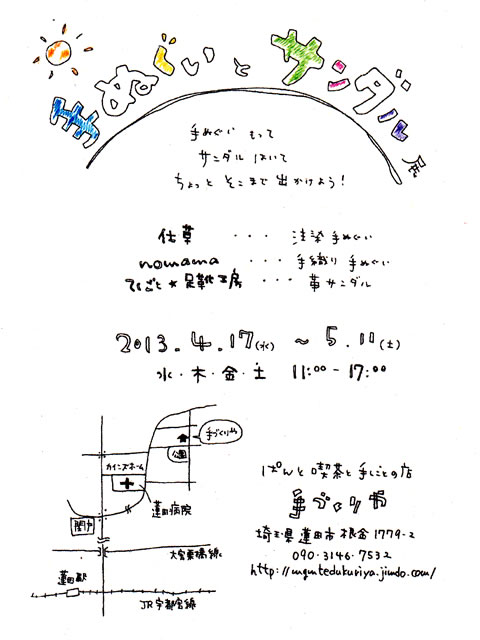 手ぬぐいとサンダル展
手ぬぐい もって
サンダル はいて
ちょっと そこまで 出かけよう！
仕草 ・・・ 注染 手ぬぐい
nomama ・・・ 手織り 手ぬぐい
てしごと★足靴工房 ・・・ 革サンダル
2013.4.17(水) ~ 5.11(土)
水・木・金・土 11:00-17:00
手づくりや
公園
カインズホーム
蓮田病院
関戸
大宮東環線
蓮田駅
JR宇都宮線
ぱんと喫茶と手しごとの店
手づくりや
埼玉県蓮田市根金1779-2
090-3146-7532
http://mgmtedukuriya.jimdo.com/